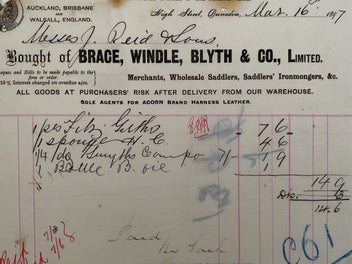 AUCKLAND, BRISBANE
AND
WALSALL, ENGLAND.
High Street, Dunedin, Mar. 16 1897
Messrs J. Reid & Sons.
Bought of BRACE, WINDLE, BLYTH & CO., LIMITED.
Cheques and Bills to be made payable to the
firm or order.
10% Interest charged on overdue a/cs.
Merchants, Wholesale Saddlers, Saddlers' Ironmongers, &c.
ALL GOODS AT PURCHASERS' RISK AFTER DELIVERY FROM OUR WAREHOUSE.
SOLE AGENTS FOR ACORN BRAND HARNESS LEATHER.
1 76
1 sponge H.C. 46
1/4 do Smyths Compo 7/- 19
1 Bottle B. oil
149
Dis. 3
14.6
Paid
By Cash
C61